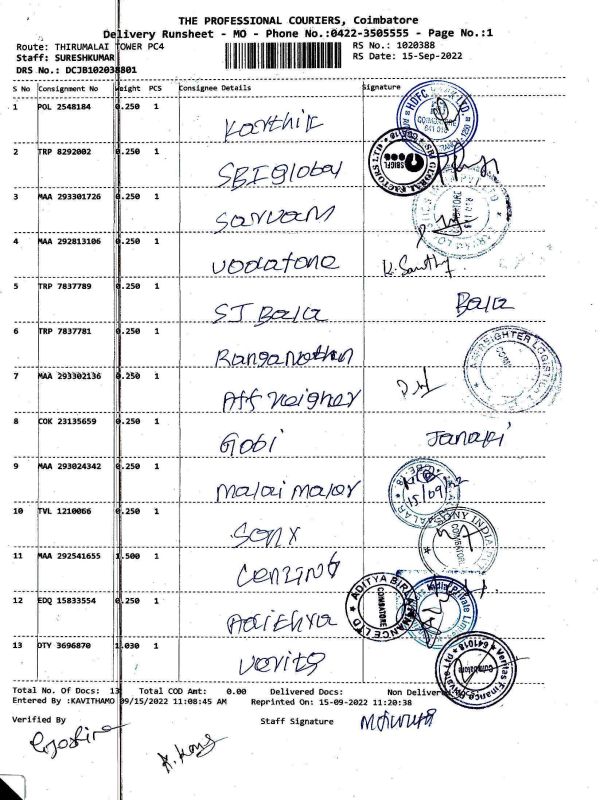 THE PROFESSIONAL COURIERS, Coimbatore
Delivery Runsheet - MO - Phone No.:0422-3505555 - Page No.:1
Route: THIRUMALAI TOWER PC4 RS No.: 1020388
Staff: SURESHKUMAR RS Date: 15-Sep-2022
DRS No.: DCJB102038801
S No Consignment No Weight PCS Consignee Details Signature
1 POL 2548184 0.250 1
Karthik
2 TRP 8292002 0.250 1
SBI Global
3 MAA 293301726 0.250 1
Sarvam
4 MAA 292813106 0.250 1
Vodafone K. Santhy
5 TRP 7837789 0.250 1
ST Bala Bala
6 TRP 7837781 0.250 1
Ranganathan
7 MAA 293302136 0.250 1
8 COK 23135659 0.250 1
Gobi Janaki
9 MAA 293024342 0.250 1
Malai Malar 15/09/22
10 TVL 1210066 0.250 1
Sony SONY INDIA
COIMBATORE
11 MAA 292541655 1.500 1
12 EDQ 15833554 0.250 1
Adithya ADITYA BIRLA FINANCE LTD
COIMBATORE
13 DTY 3696870 1.030 1
Verits Veritas Finance Private Ltd 641018
Coimbatore
Total No. Of Docs: 13 Total COD Amt: 0.00 Delivered Docs: Non Delivered
Entered By :KAVITHAMO 09/15/2022 11:08:45 AM Reprinted On: 15-09-2022 11:20:38
Verified By Staff Signature